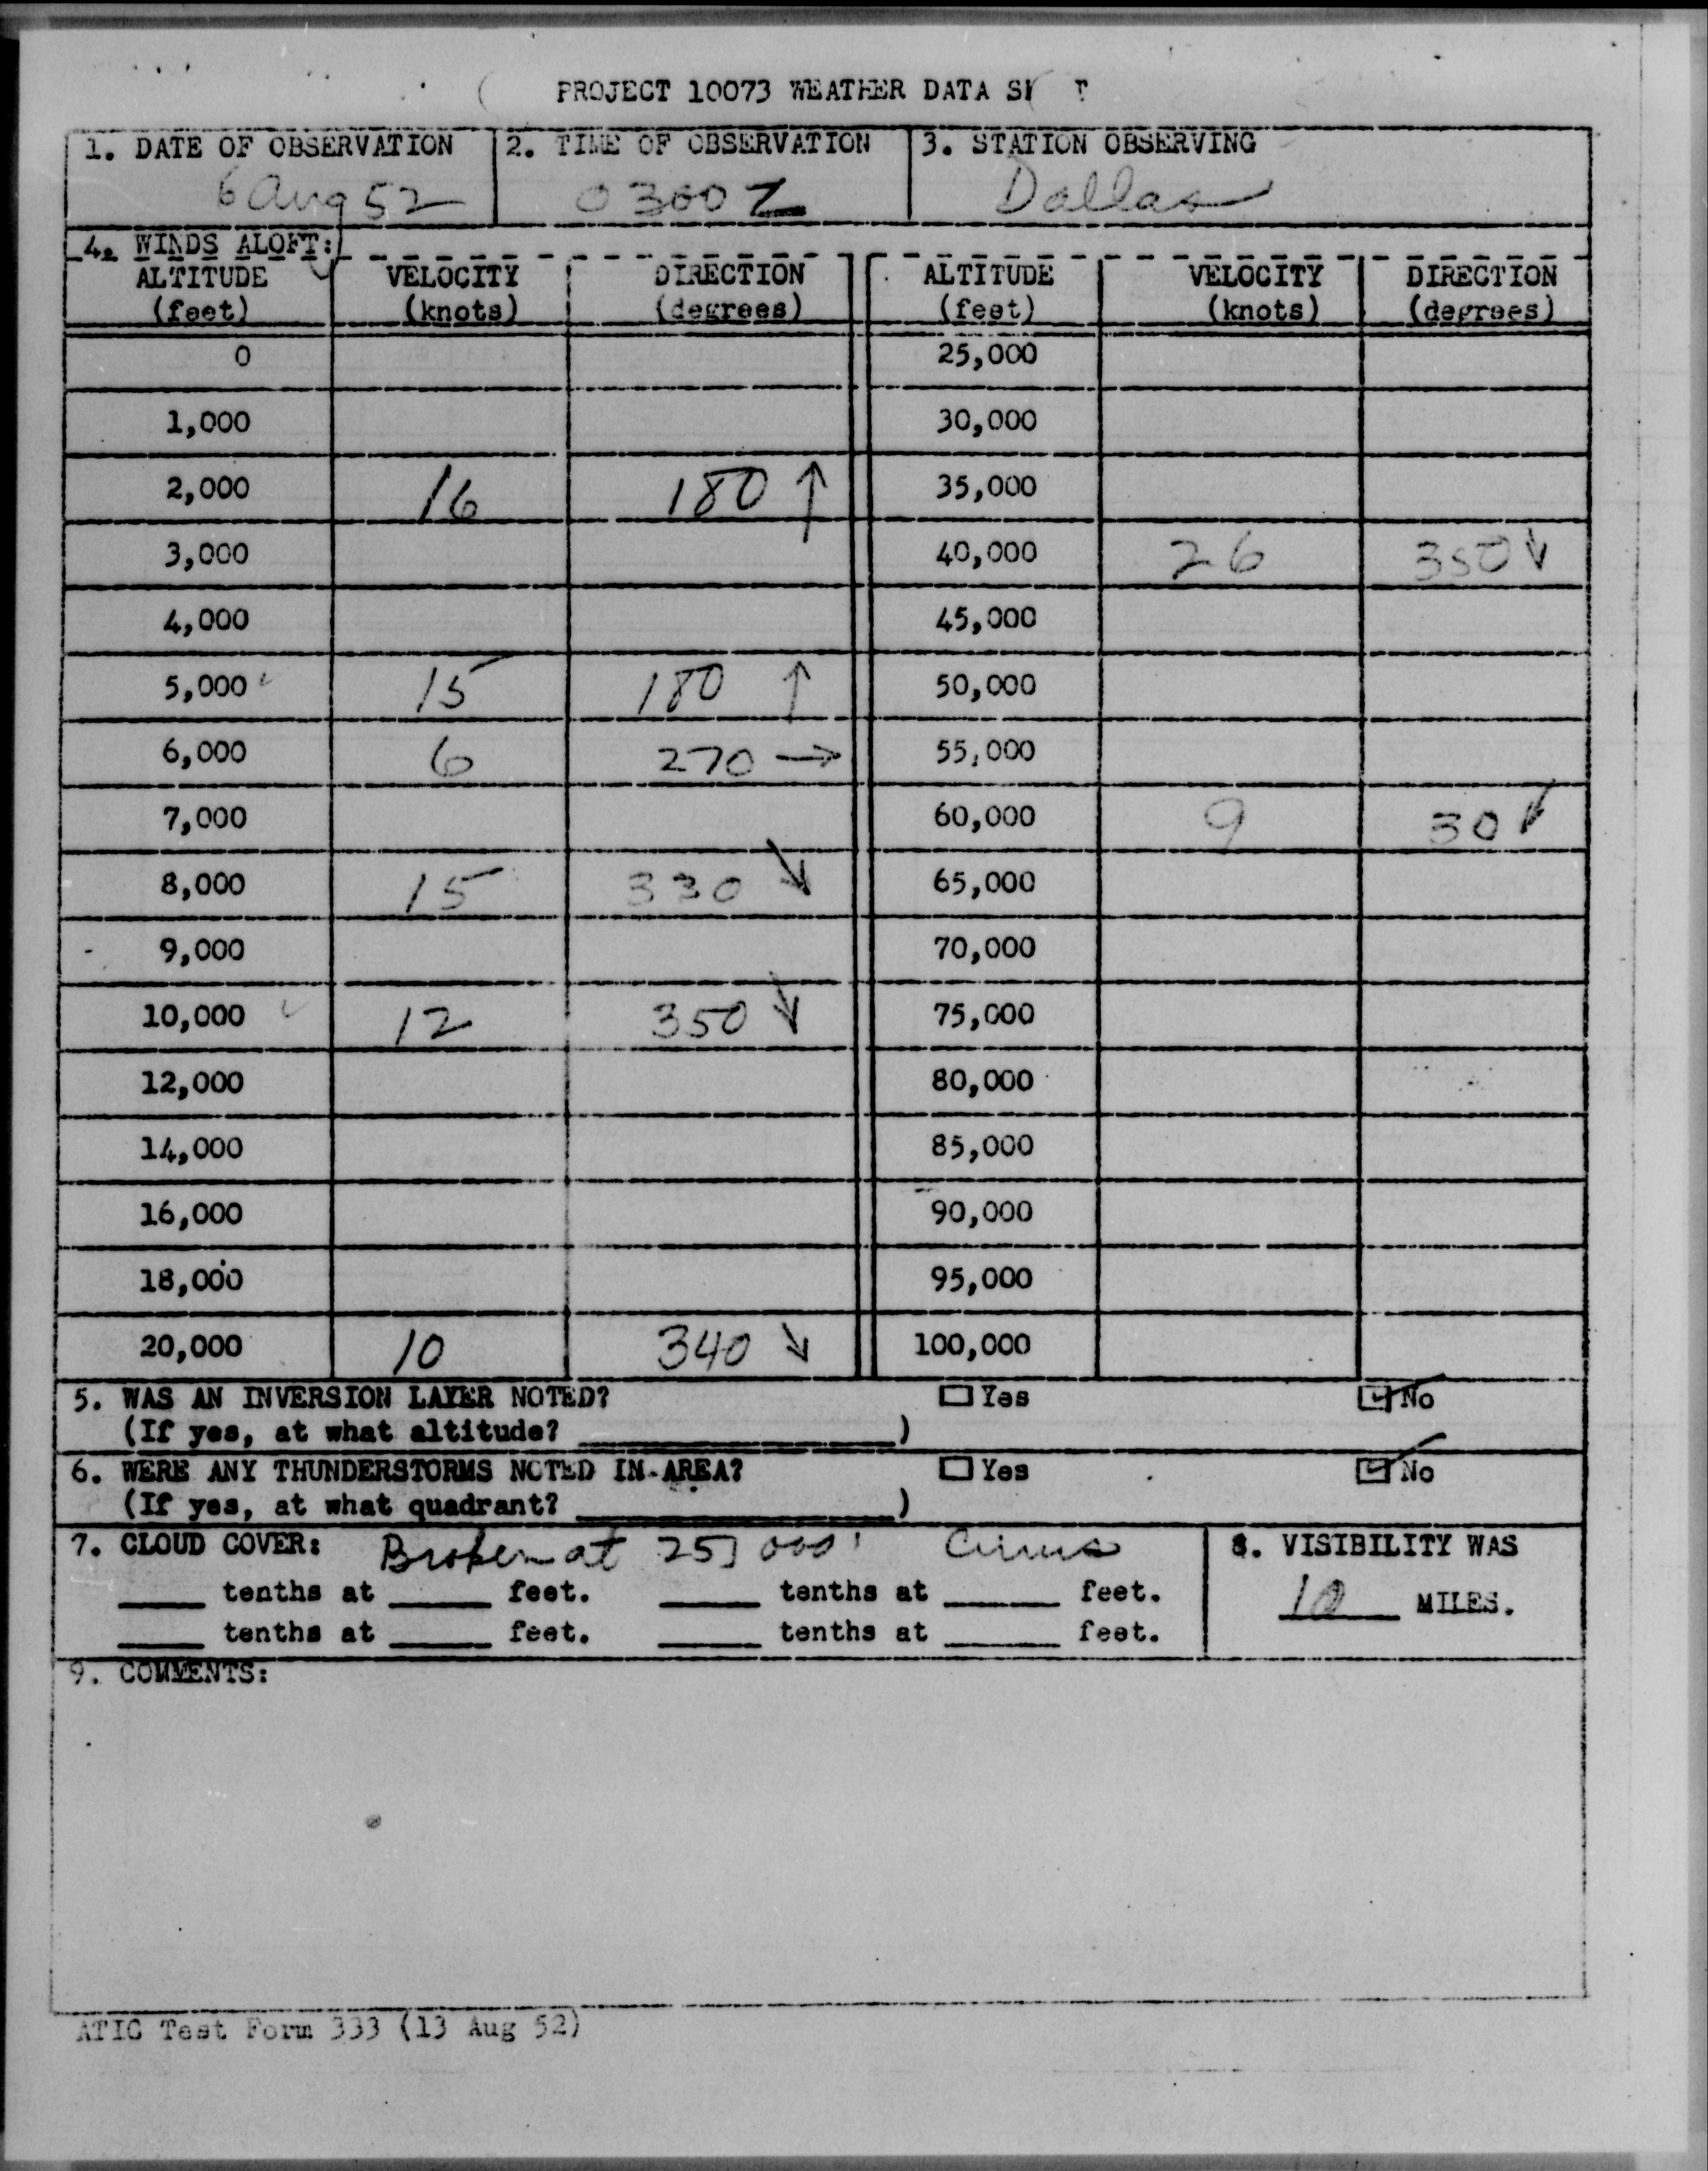 PROJECT 10073 WEATHER DATA
1. DATE OF OBSERVATION 2. TIME OF OBSERVATION 3. STATION OBSERVING
6 Aug 52 0300 Z Dallas
4. WINDS ALOFT:
ALTITUDE VELOCITY DIRECTION ALTITUDE VELOCITY DIRECTION
(feet) (knots) (degrees) (feet) (knots) (degrees)
0 25,000
1,000 30,000
2,000 16 180 ↑ 35,000
3,000 40,000 26 350 ↓
4,000 45,000
5,000 15 180 ↑ 50,000
6,000 6 270 → 55,000
7,000 60,000 9 30 ↙
8,000 15 330 ↘ 65,000
9,000 70,000
10,000 12 350 ↓ 75,000
12,000 80,000
14,000 85,000
16,000 90,000
18,000 95,000
20,000 10 340 ↘ 100,000
5. WAS AN INVERSION LAYER NOTED? ☐ Yes ☑ No
(If yes, at what altitude? ________)
6. WERE ANY THUNDERSTORMS NOTED IN AREA? ☐ Yes ☑ No
(If yes, at what quadrant? ________)
7. CLOUD COVER: Broken at 25,000' Cirrus 8. VISIBILITY WAS
____ tenths at ____ feet. ____ tenths at ____ feet. 10 MILES.
____ tenths at ____ feet. ____ tenths at ____ feet.
9. COMMENTS:
ATIC Test Form 333 (13 Aug 52)